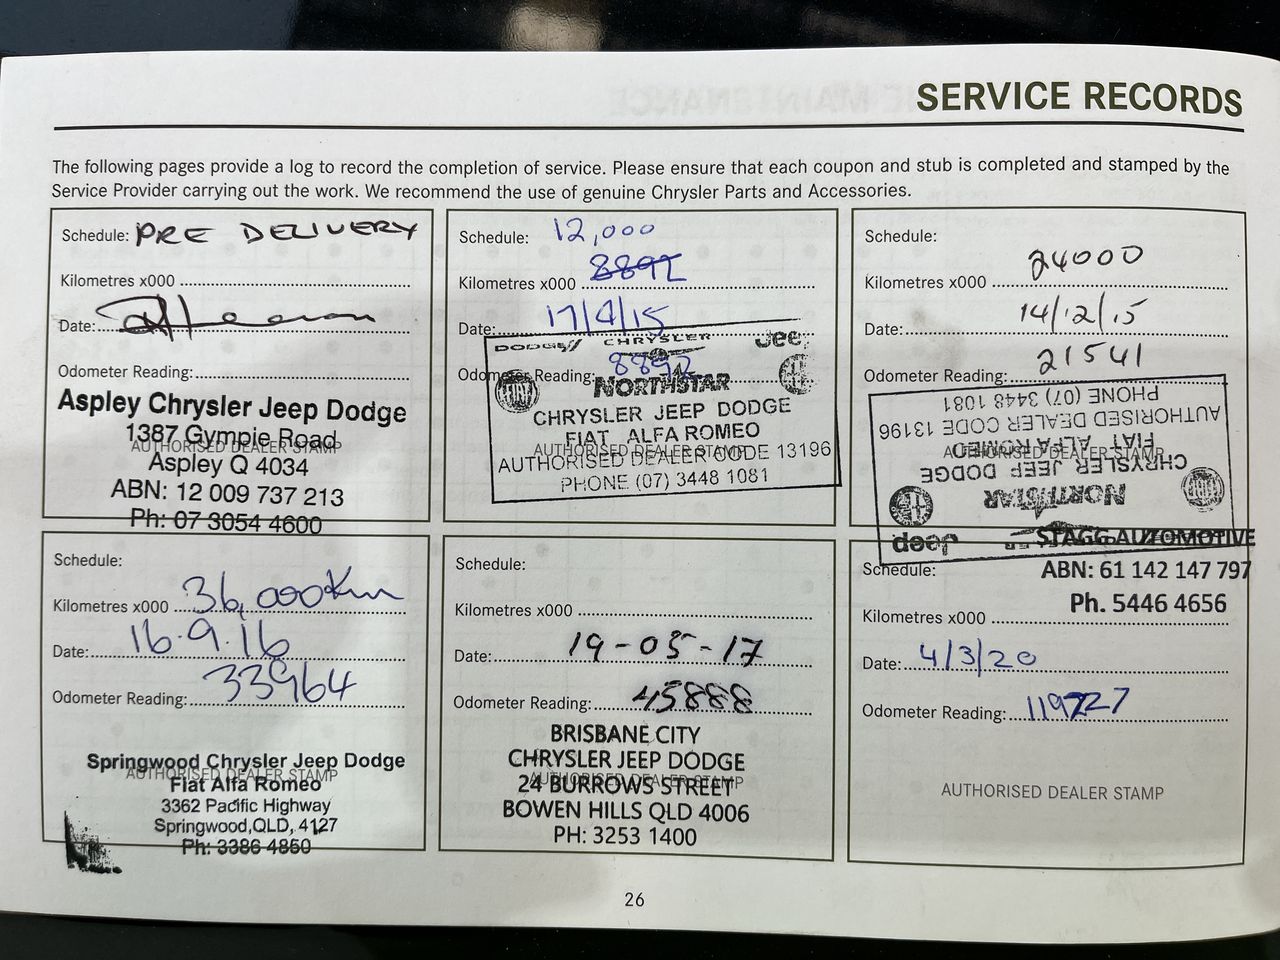 SERVICE RECORDS
The following pages provide a log to record the completion of service. Please ensure that each coupon and stub is completed and stamped by the
Service Provider carrying out the work. We recommend the use of genuine Chrysler Parts and Accessories.
Schedule: PRE DELIVERY
Kilometres x000
Date:
Odometer Reading:
Aspley Chrysler Jeep Dodge
1387 Gympie Road
AUTHORISED DEALER STAMP
Aspley Q 4034
ABN: 12 009 737 213
Ph: 07 3054 4600
Schedule: 12,000
Kilometres x000 8892
Date: 17/4/15
DODGE CHRYSLER Jeep
Odometer Reading: 8892
NORTHSTAR
CHRYSLER JEEP DODGE
FIAT ALFA ROMEO
AUTHORISED DEALER STAMP
AUTHORISED DEALER CODE 13196
PHONE (07) 3448 1081
Schedule:
Kilometres x000 24000
Date: 14/12/15
Odometer Reading: 21541
PHONE (07) 3448 1081
AUTHORISED DEALER CODE 13196
FIAT ALFA ROMEO
AUTHORISED DEALER STAMP
CHRYSLER JEEP DODGE
NORTHSTAR
Jeep
Schedule:
Kilometres x000 36,000Km
Date: 16.9.16
Odometer Reading: 33964
Springwood Chrysler Jeep Dodge
AUTHORISED DEALER STAMP
Fiat Alfa Romeo
3362 Pacific Highway
Springwood,QLD, 4127
Ph: 3386 4860
Schedule:
Kilometres x000
Date: 19-05-17
Odometer Reading: 45888
BRISBANE CITY
CHRYSLER JEEP DODGE
AUTHORISED DEALER STAMP
24 BURROWS STREET
BOWEN HILLS QLD 4006
PH: 3253 1400
STAGG AUTOMOTIVE
Schedule: ABN: 61 142 147 797
Ph. 5446 4656
Kilometres x000
Date: 4/3/20
Odometer Reading: 119727
AUTHORISED DEALER STAMP
26